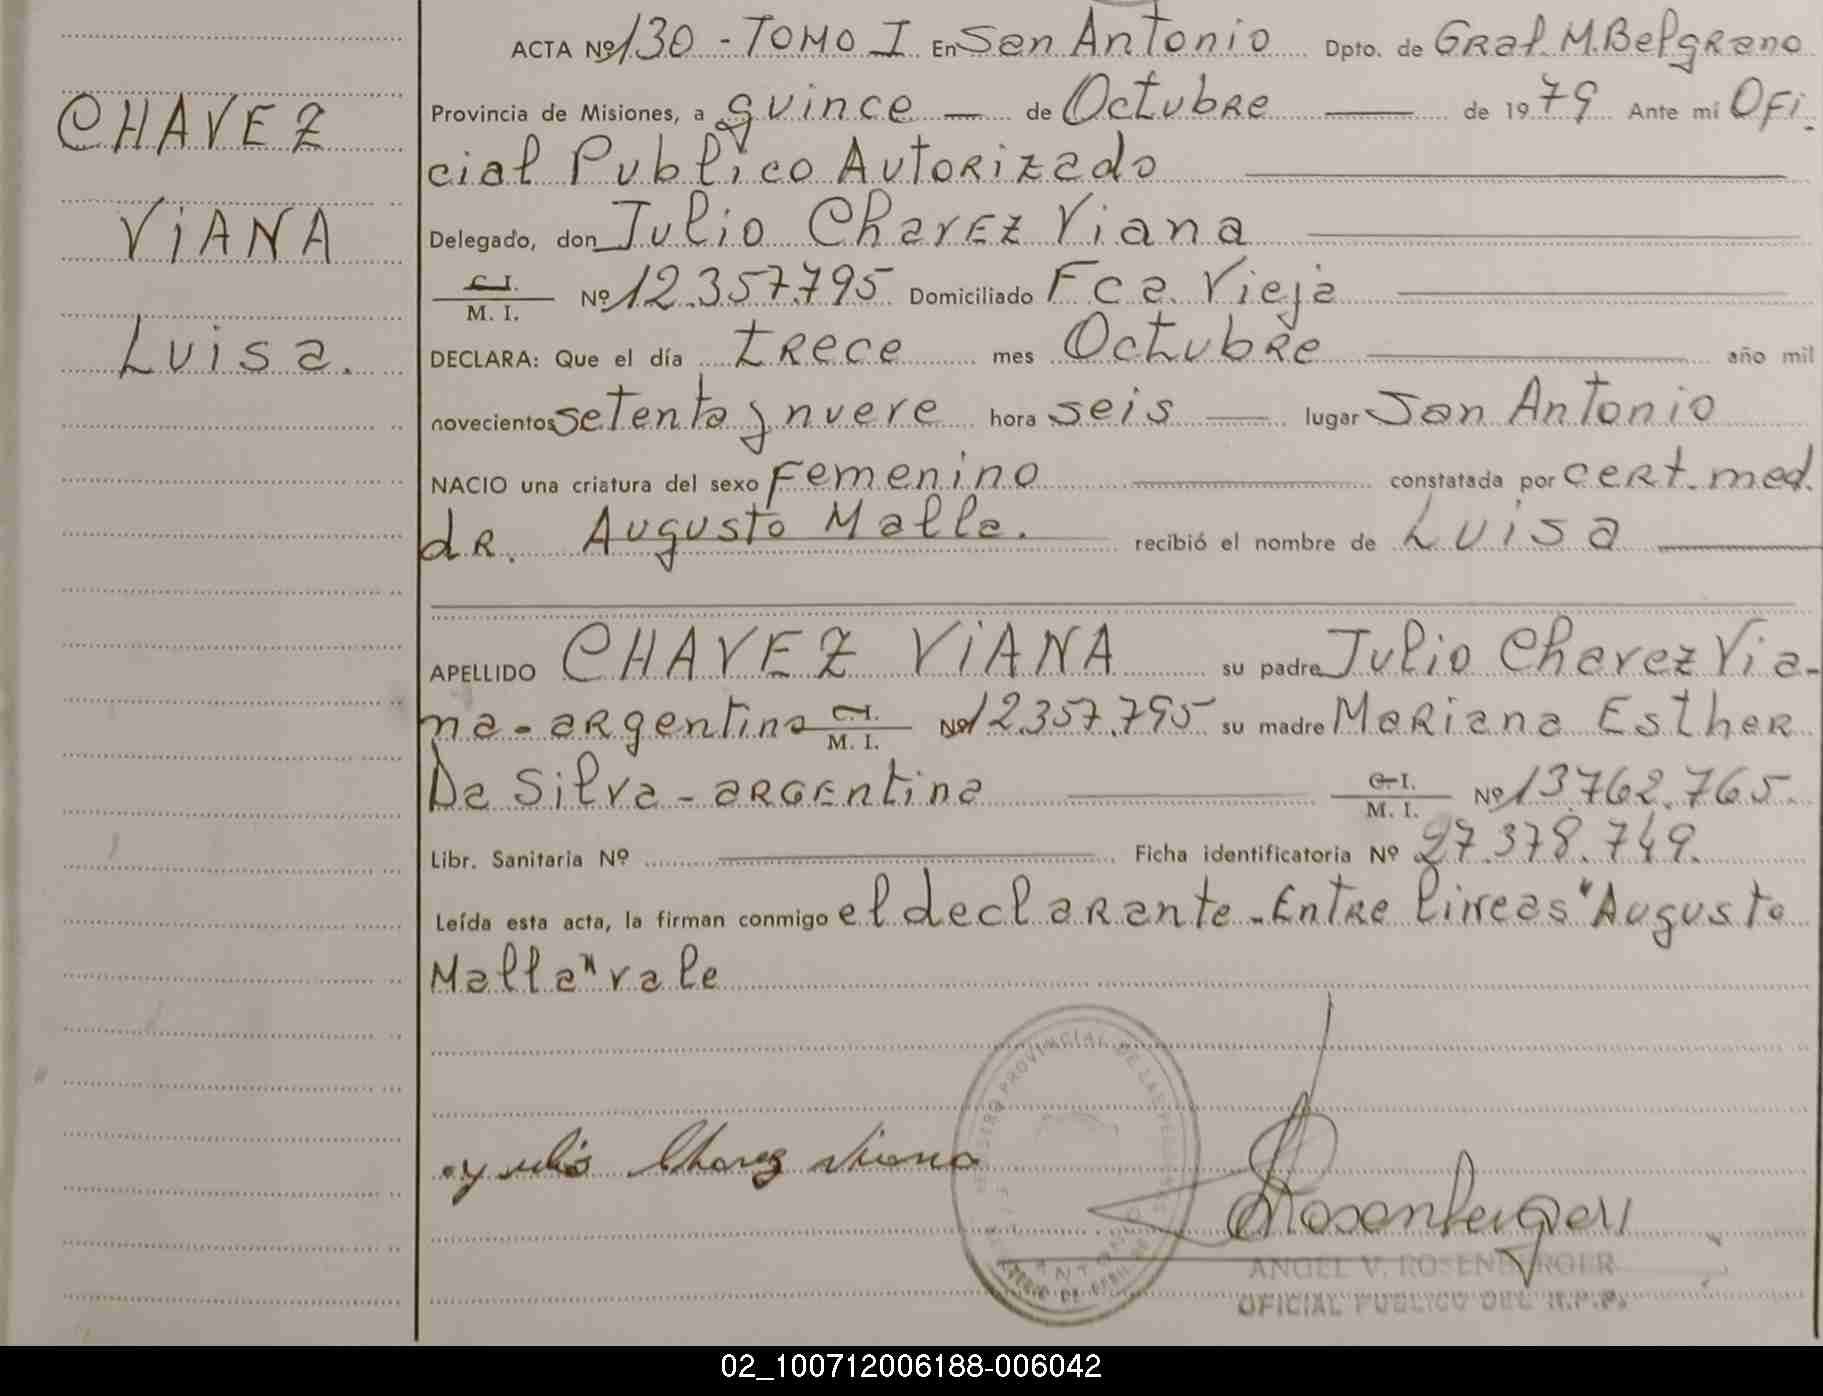 CHAVEZ
VIANA
Luisa.
ACTA Nº 130 - TOMO I En San Antonio Dpto. de Gral. M. Belgrano
Provincia de Misiones, a quince de Octubre de 1979 Ante mí Ofi.
cial Publico Autorizado
Delegado, don Julio Chavez Viana
C.I. / M. I. Nº 12.357.795 Domiciliado Fca. Vieja
DECLARA: Que el día trece mes Octubre año mil
novecientos setenta y nueve hora seis lugar San Antonio
NACIO una criatura del sexo femenino constatada por cert. med.
dr. Augusto Malla. recibió el nombre de Luisa
APELLIDO CHAVEZ VIANA su padre Julio Chavez Via-
na - argentino C.I. / M. I. Nº 12.357.795 su madre Mariana Esther
Da Silva - argentina C.I. / M. I. Nº 13.762.765.
Libr. Sanitaria Nº Ficha identificatoria Nº 27.378.749.
Leída esta acta, la firman conmigo el declarante - Entre lineas "Augusto
Malla" vale
REGISTRO PROVINCIAL DE LAS PERSONAS
Julio Chavez Viana
Rosenberger
ANGEL V. ROSENBERGER
OFICIAL PUBLICO DEL R.P.P.
02_100712006188-006042